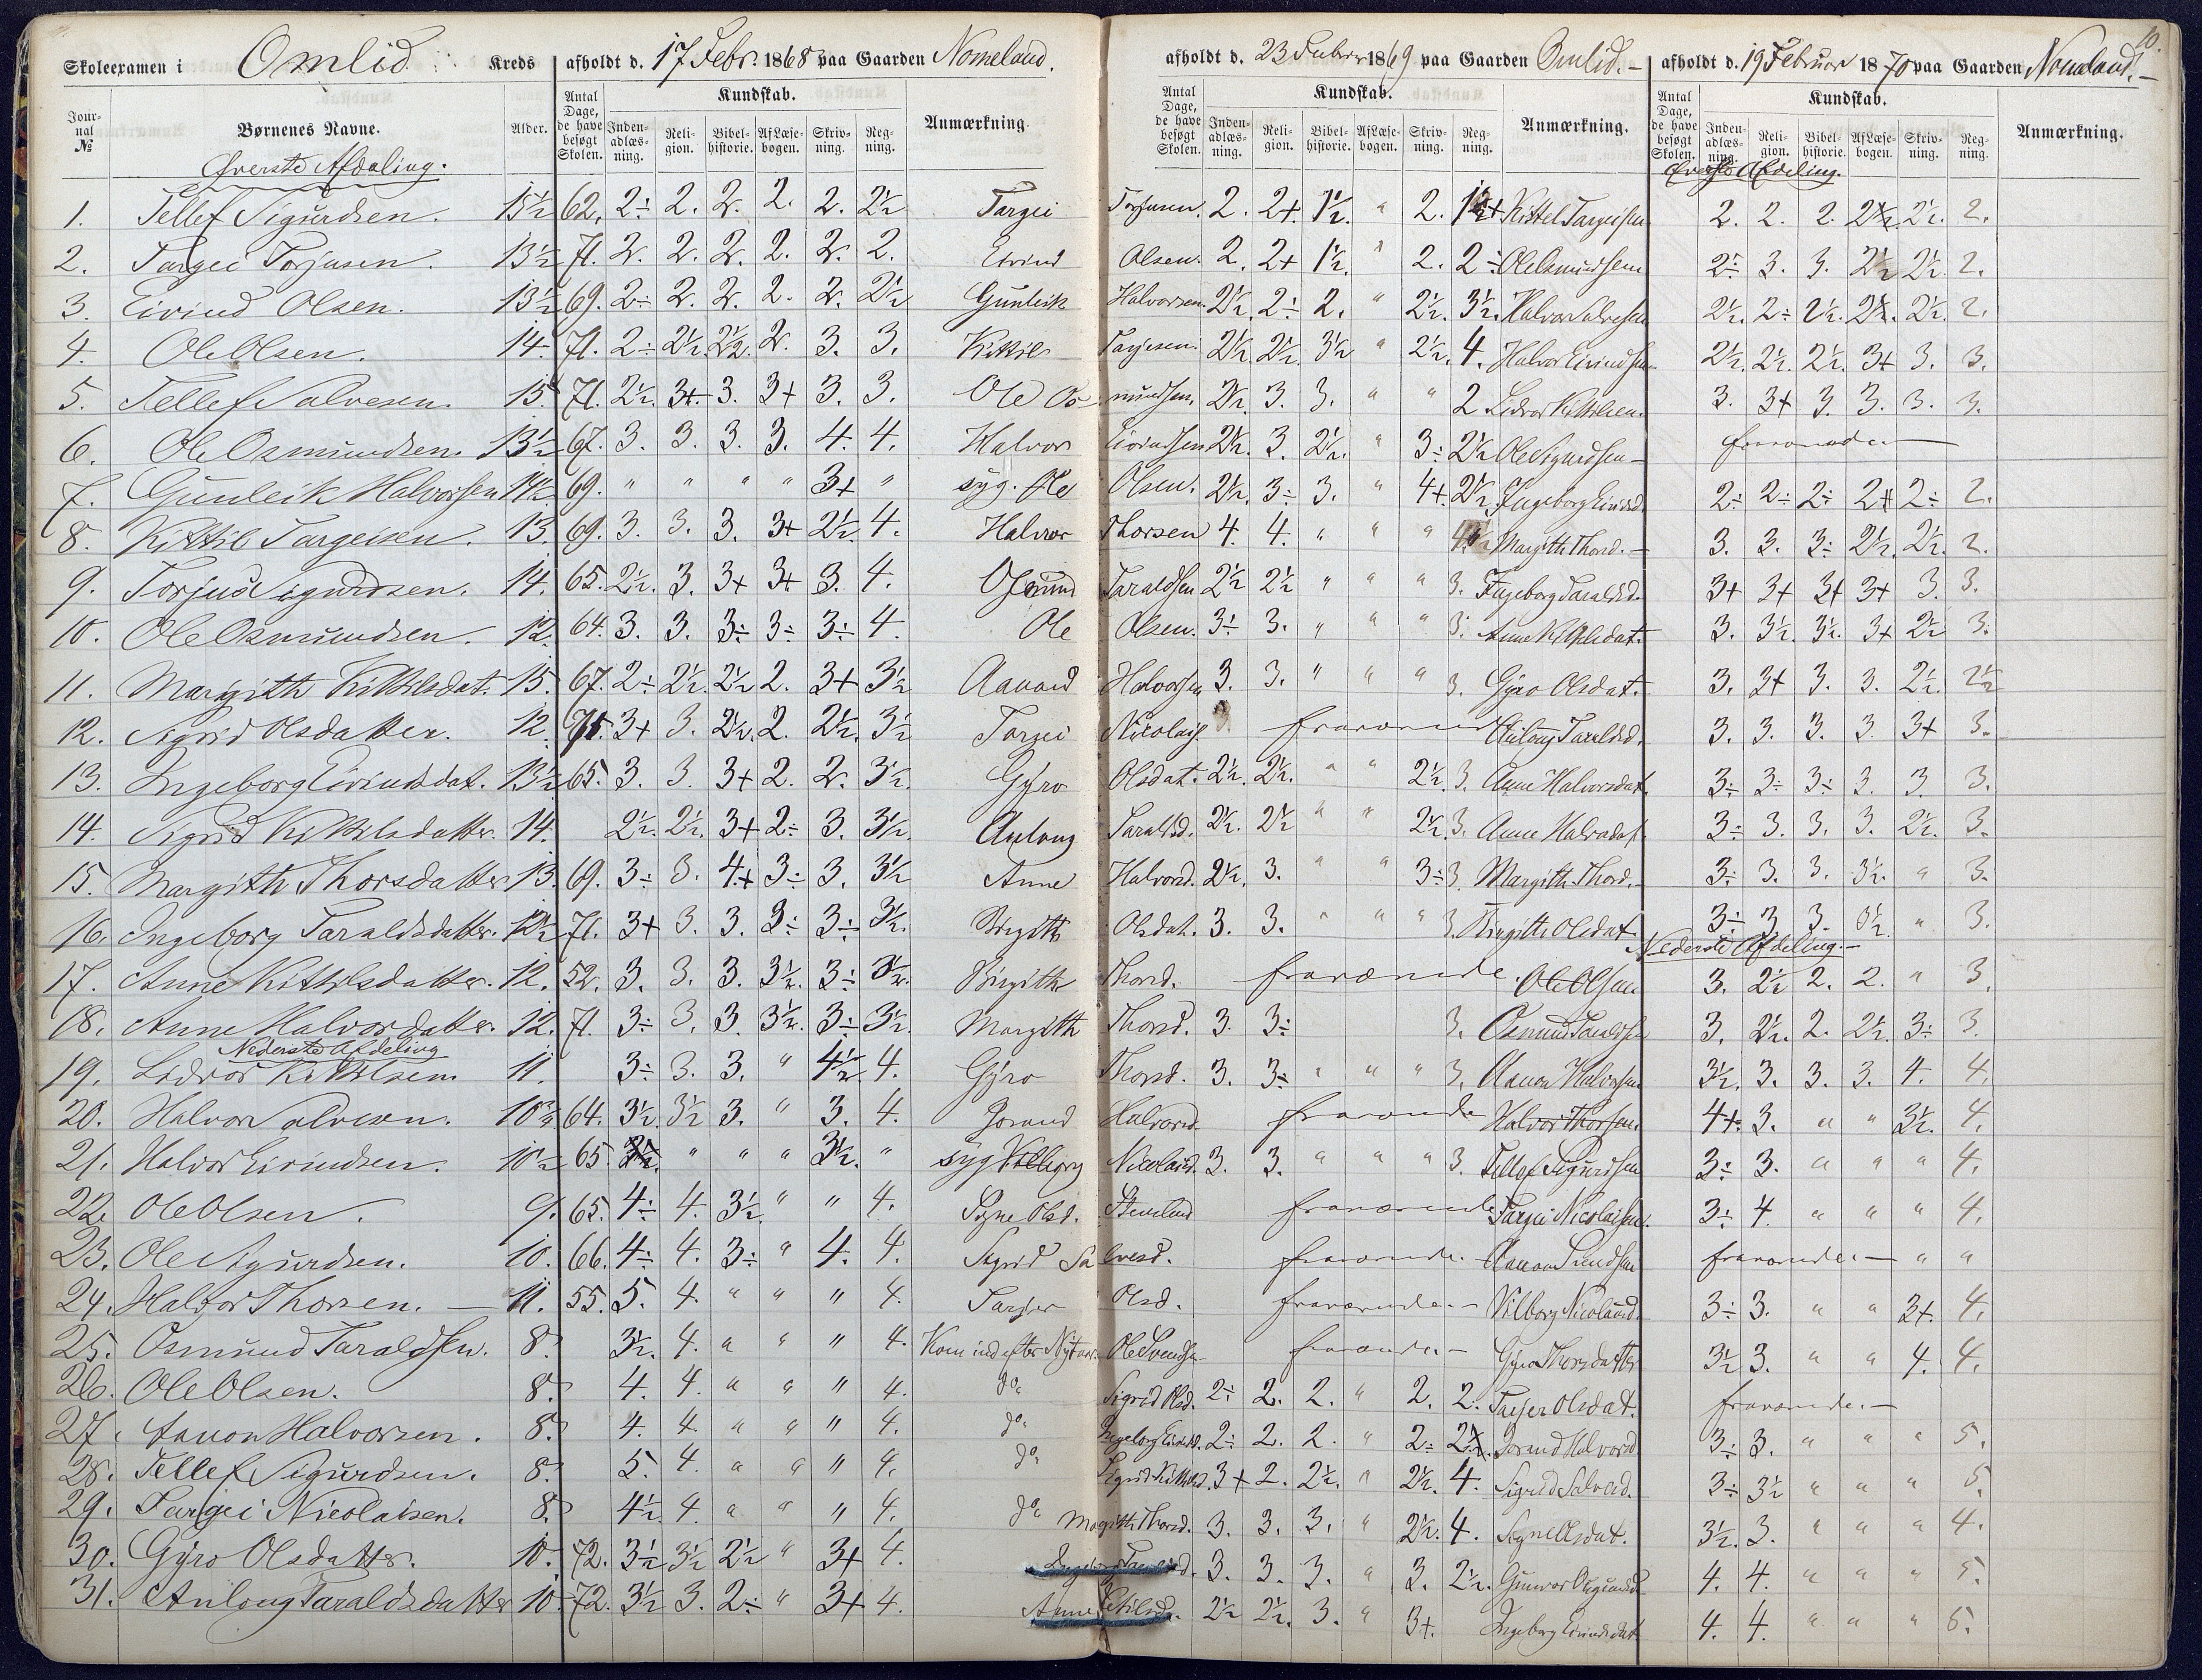 Skoleexamen i Omlid Kreds afholdt d. 17 Febr. 1868 paa Gaarden Nomeland.
Journal № Børnenes Navne. Alder. Antal Dage, de have besøgt Skolen. Kundskab. Indenadlæsning. Religion. Bibelhistorie. Af Læsebogen. Skrivning. Regning. Anmærkning.
Øverste Afdeling.
1. Tellef Sigurdsen. 15½ 62. 2÷ 2. 2. 2. 2. 2½ Targei
2. Targei Torjusen. 13½ 71. 2. 2. 2. 2. 2. 2. Eivind
3. Eivind Olsen. 13½ 69. 2÷ 2. 2. 2. 2. 2½ Gunleik
4. Ole Olsen. 14. 71. 2÷ 2½. 2½. 2. 3. 3. Kittil
5. Tellef Salvesen. 15. 71. 2½. 3+ 3. 3+ 3. 3. Ole Os-
6. Ole Osmundsen. 13½ 67. 3. 3. 3. 3. 4. 4. Halvor
7. Gunleik Halvorsen 14½ 69. " " " " 3+ " syg. Ole
8. Kittil Targeisen. 13. 69. 3. 3. 3. 3+ 2½. 4. Halvor
9. Torjus Sigurdsen. 14. 65. 2½. 3. 3+ 3+ 3. 4. Osmund
10. Ole Osmundsen. 12. 64. 3. 3. 3÷ 3÷ 3÷ 4. Ole
11. Margith Kittilsdat. 15. 67. 2÷ 2½. 2½ 2. 3+ 3½ Aanond
12. Sigrid Olsdatter. 12. 71. 3+ 3. 2½. 2. 2½. 3½ Targei
13. Ingeborg Eivindsdat. 13½ 65. 3. 3. 3+ 2. 2. 3½. Gyro
14. Sigrid Kittilsdatter. 14. 2½. 2½. 3+ 2÷ 3. 3½. Anlaug
15. Margith Thorsdatter 13. 69. 3÷ 3. 4+ 3÷ 3. 3½ Anne
16. Ingeborg Taraldsdatter. 12½ 71. 3+ 3. 3. 3÷ 3÷ 3½. Birgith
17. Anne Kittilsdatter. 12. 52. 3. 3. 3. 3½. 3÷ 3½. Birgith
18. Anne Halvorsdatter. 12. 71. 3÷ 3. 3. 3½. 3÷ 3½. Margith
Nederste Afdeling
19. Lidvor Kittilsen 11. 3÷ 3. 3. " 4½. 4. Gyro
20. Halvor Salvesen. 64. 3½. 3½ 3. " 3. 4. Jorand
21. Halvor Eivindsen. 10½ 65. " " " 3½. " syg Vilborg
22. Ole Olsen. 9. 65. 4÷ 4. 3½. " " 4. Signe Olsd.
23. Ole Sigurdsen. 10. 66. 4÷ 4. 3÷ " 4. 4. Sigrid Sa
24. Halvor Thorsen. — 11. 55. 5. 4. " " " 4. Tarjer
25. Osmund Taraldsen. 8. 3½. 4. " " " 4. Kom ind efter Nytaar
26. Ole Olsen. 8. 4. 4. " " " 4. do
27. Aanon Halvorsen. 8. 4. 4. " " " 4. do
28. Tellef Sigurdsen. 8. 5. 4. " " " 4. do
29. Targei Nicolaisen. 8. 4½. 4. " " " 4. do
30. Gyro Olsdatter. 10. 72. 3½ 3½ 2½ " 3+ 4.
31. Anlaug Taraldsdatter 10. 72. 3½ 3. 2÷ " 3+ 4.
afholdt d. 23 Februar 1869 paa Gaarden Omlid. —
Antal Dage, de have besøgt Skolen. Kundskab. Indenadlæsning. Religion. Bibelhistorie. Af Læsebogen. Skrivning. Regning. Anmærkning.
Torjusen. 2. 2+ 1½. " 2.
Olsen. 2. 2+ 1½. " 2. 2÷
Halvorsen. 2½. 2÷ 2. " 2½. 3½.
Tarjesen. 2½. 2½. 3½ " 2½. 4.
mundsen. 2½. 3. 3. " " 2
Eivindsen 2½. 3. 2½. " 3÷ 2½
Olsen. 2½. 3÷ 3. " 4+ 2½.
Thorsen 4. 4. " " "
Taraldsen 2½ 2½ " " " 3.
Olsen. 3÷ 3. " " " 3.
Halvorsen 3. 3. " " " 3.
Nicolais. fraværende
Olsdat. 2½. 2½. " " 2½. 3.
Taraldsd. 2½. 2½ " " 2½. 3.
Halvorsd. 2½. 3. " " 3÷ 3.
Olsdat. 3. 3. " " " 3.
Thorsd. fraværende.
Thorsd. 3. 3÷ 3.
Thorsd. 3. 3÷ " " " 3.
Halvorsd. fraværende
Nicolaisd. 3. 3. " " " 3.
fraværende
lvesd. fraværende. —
Olsd. fraværende. —
Ole Svendsen fraværende. —
Sigrid Olsd. 2÷ 2. 2. " 2. 2.
Ingeborg Eivindsd. 2÷ 2. 2. " 2÷
Sigrid Kittilsd. 3+ 2. 2½. " 2½. 4.
Margith Thorsd. 3. 3. 3. " 2½. 4.
3. 3. 3. " 3. 2½.
Anne Kittilsd. 2½ 2½. 3. " 3+.
afholdt d. 19 Februar 1870 paa Gaarden Nomeland. —
10.
Antal Dage, de have besøgt Skolen. Kundskab. Indenadlæsning. Religion. Bibelhistorie. Af Læsebogen. Skrivning. Regning. Anmærkning.
Øverste Afdeling.
Kittel Targeisen 2. 2. 2. 2½. 2½. 2.
Ole Osmundsen 2÷ 3. 3. 2½ 2½. 2.
Halvor Salvesen 2½. 2÷ 2½. 2½. 2½. 2.
Halvor Eivindsen 2½. 2½. 2½. 3+ 3. 3.
Lidvor Kittilsen. 3. 3+ 3. 3. 3. 3.
Ole Sigurdsen — fraværende
Ingeborg Eivindsd. 2÷ 2÷ 2÷ 2+ 2÷ 2.
Margith Thorsd. — 3. 3. 3÷ 2½. 2½. 2.
Ingeborg Taraldsd. 3+ 3+ 3+ 3+ 3. 3.
Anne K Olsdat. 3. 3½. 3½. 3+ 2½ 3.
Gyro Olsdat. 3. 3+ 3. 3. 2½. 2½
Anlaug Taraldsd. 3. 3. 3. 3 3+ 3.
Anne Halvorsdat. 3÷ 3÷ 3÷ 3. 3. 3.
Anne Halvorsdat. 3÷ 3. 3. 3. 2½. 3.
Margith Thorsd. — 3÷ 3. 3. 3½. " 3.
Birgitte Olsdat. 3÷ 3 3. " 3.
Nederste Afdeling. —
Ole Olsen 3. 2½ 2. 2. " 3.
Osmund Taraldsen 3. 2½. 2. 2½. 3÷ 3.
Aanon Halvorsen 3½. 3. 3. 3. 4. 4.
Halvor Thorsen. 4+. 3. " " 3½. 4.
Tellef Sigurdsen 3÷ 3. " " " 4.
Targei Nicolaisen. 3÷ 4 " " " 4.
Aanon Svendsen fraværende. — " "
Vilborg Nicolaisd. 3÷ 3. " " 3+. 4.
Gyro Thorsdatter 3½ 3. " " 4. 4.
Tarjer Olsdat. fraværende. —
Jorand Halvorsd 3÷ 3. " " " 5.
Sigrid Salvesd. 3÷ 3½ " " " 5.
Signe Olsdat. 3½. 3. " " " 4.
4. 4. " " " 5.
Ingeborg Eivindsdat 4. 4. " " " 5.